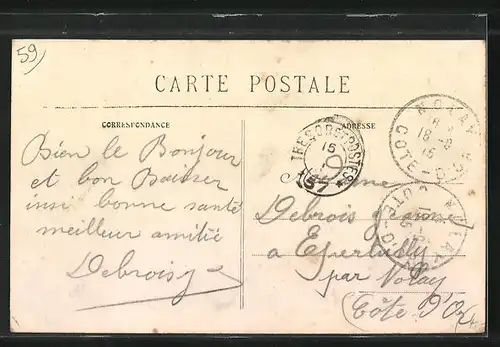 59
CARTE POSTALE
CORRESPONDANCE
ADRESSE
Bien le Bonjour
et bon Baiser
insi bonne santé
meilleur amitié
Debrois
TRESOR ET POSTES
15
57
NOLAY
18-6
15
COTE-D'OR
NOLAY
COTE-D'OR
Debrois Jeanne
a Epertully
par Nolay
(Côte d'Or)